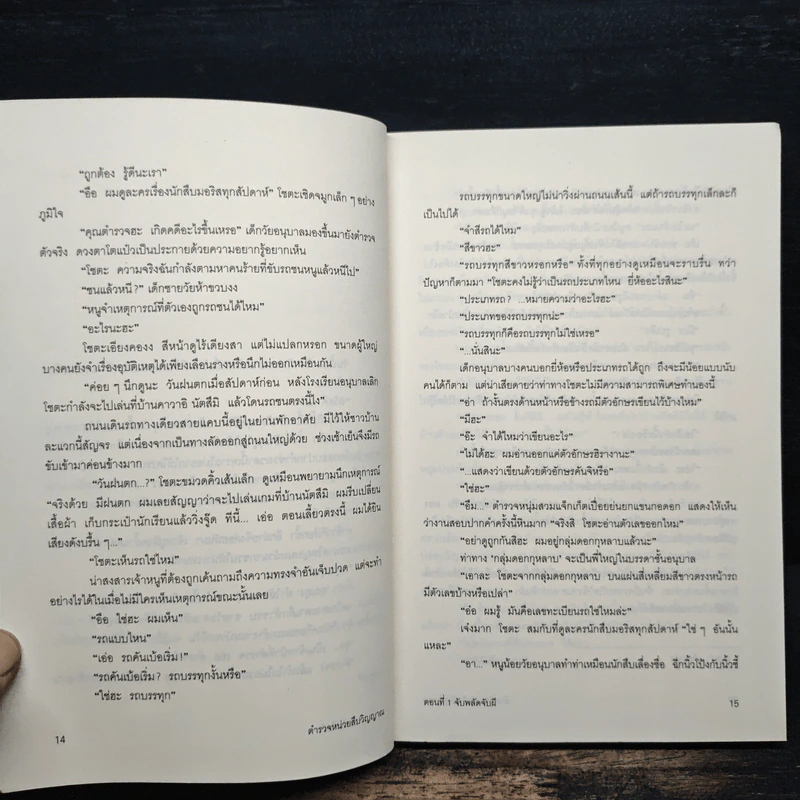 “ถูกต้อง รู้ดีนะเรา”
“อือ ผมดูละครเรื่องนักสืบมอริสทุกสัปดาห์” โชตะเชิดจมูกเล็ก ๆ อย่าง
ภูมิใจ
“คุณตำรวจฮะ เกิดคดีอะไรขึ้นเหรอ” เด็กวัยอนุบาลมองขึ้นมายังตำรวจ
ตัวจริง ดวงตาโตแป๋วเป็นประกายด้วยความอยากรู้อยากเห็น
“โชตะ ความจริงฉันกำลังตามหาคนร้ายที่ขับรถชนหนูแล้วหนีไป”
“ชนแล้วหนี?” เด็กชายวัยห้าขวบงง
“หนูจำเหตุการณ์ที่ตัวเองถูกรถชนได้ไหม”
“อะไรนะฮะ”
โชตะเอียงคองง สีหน้าดูไร้เดียงสา แต่ไม่แปลกหรอก ขนาดผู้ใหญ่
บางคนยังจำเรื่องอุบัติเหตุได้เพียงเลือนรางหรือนึกไม่ออกเหมือนกัน
“ค่อย ๆ นึกดูนะ วันฝนตกเมื่อสัปดาห์ก่อน หลังโรงเรียนอนุบาลเลิก
โชตะกำลังจะไปเล่นที่บ้านคาวาอิ นัตสึมิ แล้วโดนรถชนตรงนี้ไง”
ถนนเดินรถทางเดียวสายแคบนี้อยู่ในย่านพักอาศัย มีไว้ให้ชาวบ้าน
ละแวกนี้สัญจร แต่เนื่องจากเป็นทางลัดออกสู่ถนนใหญ่ด้วย ช่วงเช้าเย็นจึงมีรถ
ขับเข้ามาค่อนข้างมาก
“วันฝนตก...?” โชตะขมวดคิ้วเส้นเล็ก ดูเหมือนพยายามนึกเหตุการณ์
“จริงด้วย มีฝนตก ผมเลยสัญญาว่าจะไปเล่นเกมที่บ้านนัตสึมิ ผมรีบเปลี่ยน
เสื้อผ้า เก็บกระเป๋านักเรียนแล้ววิ่งจู๊ด ทีนี้... เอ่อ ตอนเลี้ยวตรงนี้ ผมได้ยิน
เสียงดังบรื้น ๆ...”
“โชตะเห็นรถใช่ไหม”
น่าสงสารเจ้าหนูที่ต้องถูกเค้นถามถึงความทรงจำอันเจ็บปวด แต่จะทำ
อย่างไรได้ในเมื่อไม่มีใครเห็นเหตุการณ์ขณะนั้นเลย
“อือ ใช่ฮะ ผมเห็น”
“รถแบบไหน”
“เอ่อ รถคันเบ้อเริ่ม!”
“รถคันเบ้อเริ่ม? รถบรรทุกงั้นหรือ”
“ใช่ฮะ รถบรรทุก”
14
ตำรวจหน่วยสืบวิญญาณ
รถบรรทุกขนาดใหญ่ไม่น่าวิ่งผ่านถนนเส้นนี้ แต่ถ้ารถบรรทุกเล็กละก็
เป็นไปได้
“จำสีรถได้ไหม”
“สีขาวฮะ”
“รถบรรทุกสีขาวหรอกหรือ” ทั้งที่ทุกอย่างดูเหมือนจะราบรื่น ทว่า
ปัญหาก็ตามมา “โชตะคงไม่รู้ว่าเป็นรถประเภทไหน ยี่ห้ออะไรสินะ”
“ประเภทรถ? ...หมายความว่าอะไรฮะ”
“ประเภทของรถบรรทุกน่ะ”
“รถบรรทุกก็คือรถบรรทุกไม่ใช่เหรอ”
“...นั่นสินะ”
เด็กอนุบาลบางคนบอกยี่ห้อหรือประเภทรถได้ถูก ถึงจะมีน้อยแบบนับ
คนได้ก็ตาม แต่น่าเสียดายว่าท่าทางโชตะไม่มีความสามารถพิเศษทำนองนี้
“อ่า ถ้างั้นตรงด้านหน้าหรือข้างรถมีตัวอักษรเขียนไว้บ้างไหม”
“มีฮะ”
“อ๊ะ จำได้ไหมว่าเขียนอะไร”
“ไม่ได้ฮะ ผมอ่านออกแค่ตัวอักษรฮิรางานะ”
“...แสดงว่าเขียนด้วยตัวอักษรคันจิหรือ”
“ใช่ฮะ”
“อืม...” ตำรวจหนุ่มสวมแจ็กเก็ตเปื่อยย่นยกแขนกอดอก แสดงให้เห็น
ว่างานสอบปากคำครั้งนี้หินมาก “จริงสิ โชตะอ่านตัวเลขออกไหม”
“อย่าดูถูกกันสิฮะ ผมอยู่กลุ่มดอกกุหลาบแล้วนะ”
ท่าทาง ‘กลุ่มดอกกุหลาบ’ จะเป็นพี่ใหญ่ในบรรดาชั้นอนุบาล
“เอาละ โชตะจากกลุ่มดอกกุหลาบ บนแผ่นสี่เหลี่ยมสีขาวตรงหน้ารถ
มีตัวเลขบ้างหรือเปล่า”
“อ๋อ ผมรู้ มันคือเลขทะเบียนรถใช่ไหมล่ะ”
เจ๋งมาก โชตะ สมกับที่ดูละครนักสืบมอริสทุกสัปดาห์ “ใช่ ๆ อันนั้น
แหละ”
“อา...” หนูน้อยวัยอนุบาลทำท่าเหมือนนักสืบเลื่องชื่อ ฉีกนิ้วโป้งกับนิ้วชี้
ตอนที่ 1 จับพลัดจับผี
15